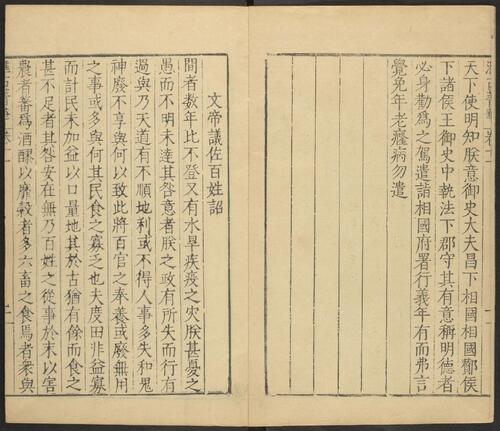 天下使明知朕意御史大夫昌下相國相國酇侯
下諸侯王御史中執法下郡守其有意稱明德者
必身勸爲之駕遣詣相國府署行義年有而弗言
覺免年老癃病勿遣
文帝議佐百姓詔
間者數年比不登又有水旱疾疫之灾朕甚憂之
愚而不明未達其咎意者朕之政有所失而行有
過與乃天道有不順地利或不得人事多失和鬼
神廢不享與何以致此將百官之奉養或廢無用
之事或多與何其民食之寡乏也夫度田非益寡
而計民未加益以口量地其於古猶有餘而食之
甚不足者其咎安在無乃百姓之從事於末以害
農者蕃爲酒醪以靡穀者多六畜之食焉者衆與